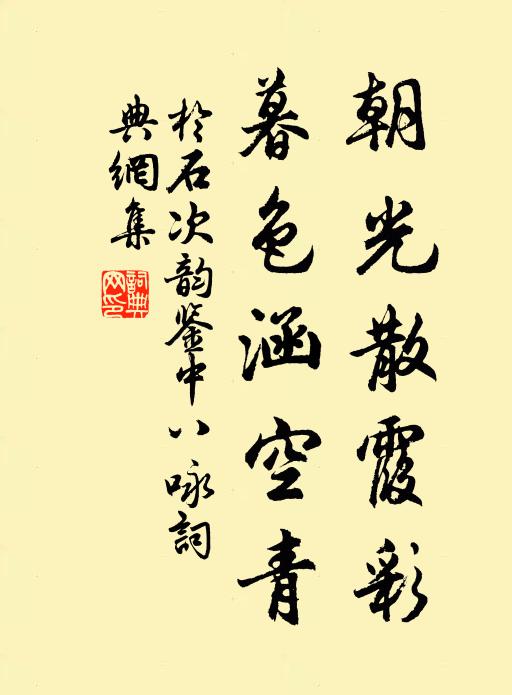 朝光散霞彩
暮色涵空青
於石次韵鉴中八咏詞
典網集
詞典网印